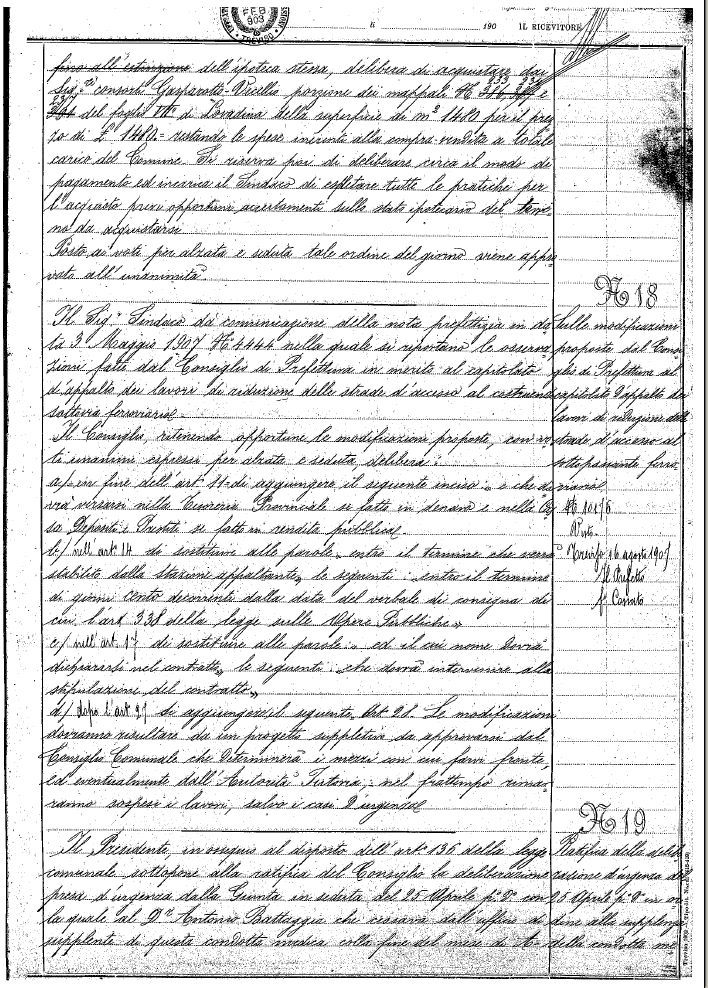 FEB. 903
TREVISO
li 190 IL RICEVITORE
fino all'estinzione dell'ipoteca stessa, delibera di acquistare dai
Sig.ri consorti Gasparotto-Vicello porzione dei mappali N
del foglio di Lovadina della superficie di m² 1480 per il prez-
zo di £ 1480.= restando le spese inerenti alla compra-vendita a totale
carico del Comune. Si riserva poi di deliberare circa il modo di
pagamento ed incarica il Sindaco di espletare tutte le pratiche per
l'acquisto previ opportuni accertamenti sullo stato ipotecario del terre-
no da acquistarsi.
Posto ai voti per alzata e seduta tale ordine del giorno viene appro-
vato all'unanimità
N 18
Il Sig.r Sindaco dà comunicazione della nota prefettizia in da-
ta 3 Maggio 1907 N 4444 nella quale si riportano le osserva-
zioni fatte dal Consiglio di Prefettura in merito al capitolato
d'appalto dei lavori di riduzione delle strade d'accesso al costruendo
sottovia ferroviario.
Il Consiglio, ritenendo opportune le modificazioni proposte, con vo-
ti unanimi espressi per alzata e seduta delibera:
a/ in fine dell'art 11 di aggiungere il seguente inciso „ e che do-
vrà versarsi nella Tesoreria Provinciale se fatto in denaro e nella Cas-
sa Depositi e Prestiti se fatto in rendita pubblica
b/ nell'art 14 di sostituire alle parole „ entro il termine che verrà
stabilito dalla stazione appaltante„ le seguenti: „entro il termine
di giorni cento decorrenti dalla data del verbale di consegna di
cui l'art 338 della legge sulle Opere Pubbliche„
c/ nell'art 17 di sostituire alle parole: „ ed il cui nome dovrà
dichiararsi nel contratto„ le seguenti „che dovrà intervenire alla
stipulazione del contratto„
d/ dopo l'art 27 di aggiungere il seguente, Art 28. Le modificazioni
dovranno risultare da un progetto suppletivo da approvarsi dal
Consiglio Comunale che determinerà i mezzi con cui farvi fronte,
ed eventualmente dall'Autorità Tutoria; nel frattempo rimar-
ranno sospesi i lavori, salvo i casi d'urgenza
Sulle modificazioni
proposte dal Consi-
glio di Prefettura al
capitolato d'appalto dei
lavori di riduzione delle
strade d'accesso al
sottopassante ferro-
viario.
N 10176
Visto
Treviso 16 agosto 1907
Il Prefetto
N 19
Il Presidente, in ossequio al disposto dell'art 136 della legge
comunale, sottopone alla ratifica del Consiglio la deliberazione
presa d'urgenza dalla Giunta in seduta del 25 Aprile p.° p.° con
la quale al D.r Antonio Battaggia che cessava dall'ufficio di
supplente di questa condotta medica colla fine del mese di A-
Ratifica della delibe-
razione d'urgenza del
25 Aprile p.° p.° in or-
dine alla supplenza
della condotta me-